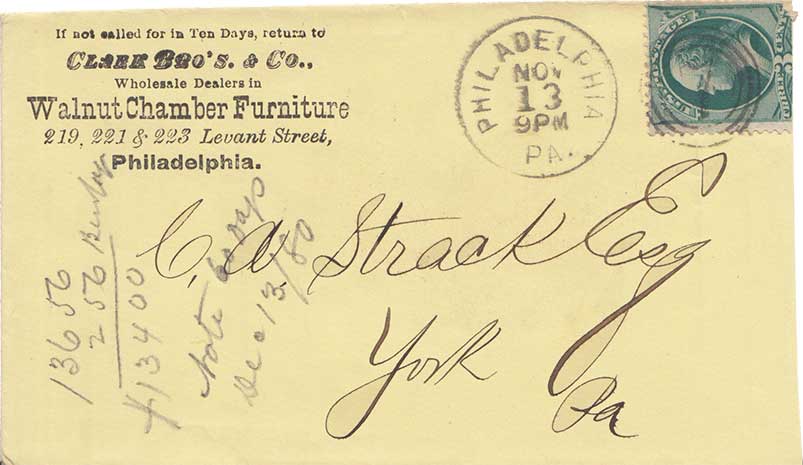 If not called for in Ten Days, return to
CLARK BRO'S. & CO.,
Wholesale Dealers in
Walnut Chamber Furniture
219, 221 & 223 Levant Street,
Philadelphia.
PHILADELPHIA
NOV
13
9PM
PA.
C. A. Strack Esq
York
Pa
136 56
2 56
134 00
Note 60 days
Dec 13/80